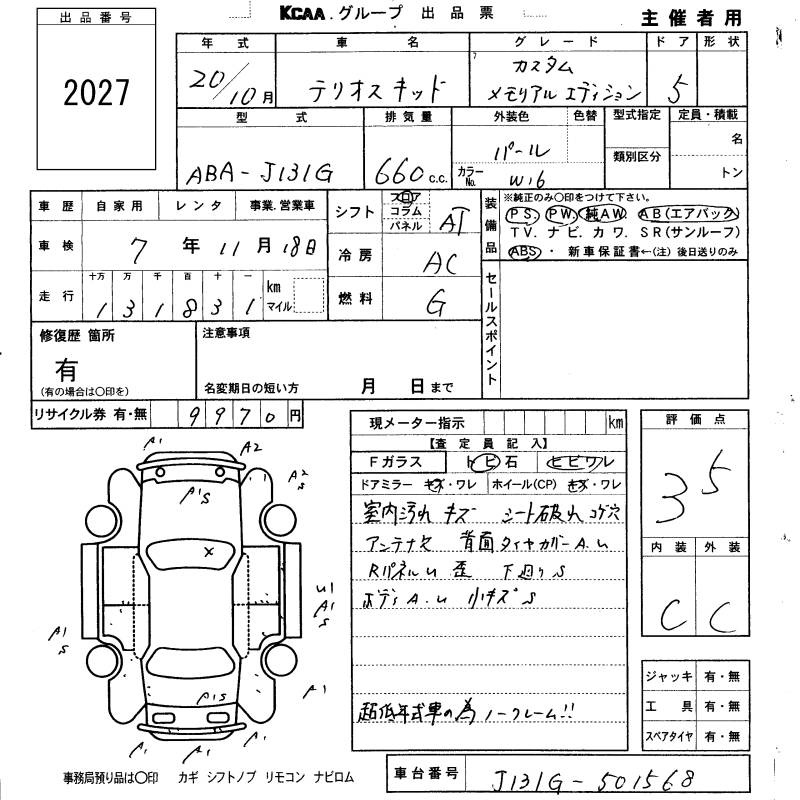 出品番号
2027
KCAA.グループ 出品票
主催者用
年式 車名 グレード ドア 形状
20/10月 テリオスキッド カスタム メモリアル エディション 5
型式 排気量 外装色 色替 型式指定 定員・積載
類別区分 名
ABA-J131G 660c.c. パール カラーNo. W16 トン
車歴 自家用 レンタ 事業.営業車
車検 7年 11月 18日
走行 十万 万 千 百 十 一
1 3 1 8 3 1 km マイル
シフト フロア コラム パネル AT
冷房 AC
燃料 G
装備品
※純正のみ〇印をつけて下さい。
PS. PW. 純AW. AB(エアバック)
TV. ナビ. カワ. SR(サンルーフ)
ABS・ 新車保証書←(注)後日送りのみ
セールスポイント
修復歴 箇所
有
(有の場合は〇印を)
注意事項
名変期日の短い方 月 日まで
リサイクル券 有・無 9970円
現メーター指示 km
【査定員記入】
Fガラス トビ石 ヒビワレ
ドアミラー キズ・ワレ ホイール(CP) キズ・ワレ
室内汚れ キズ シート破れ コゲ穴
アンテナ欠 背面タイヤカバーA.U
RパネルU 歪 下廻りS
ボディA.U 小キズS
超低年式車の為ノークレーム!!
評価点
3.5
内装 外装
C C
ジャッキ 有・無
工具 有・無
スペアタイヤ 有・無
A1 A2
A2 S
A1S
X
U1
A1
S
A1
S
A1S A1
A1 A1
事務局預り品は〇印 カギ シフトノブ リモコン ナビロム
車台番号 J131G-501568